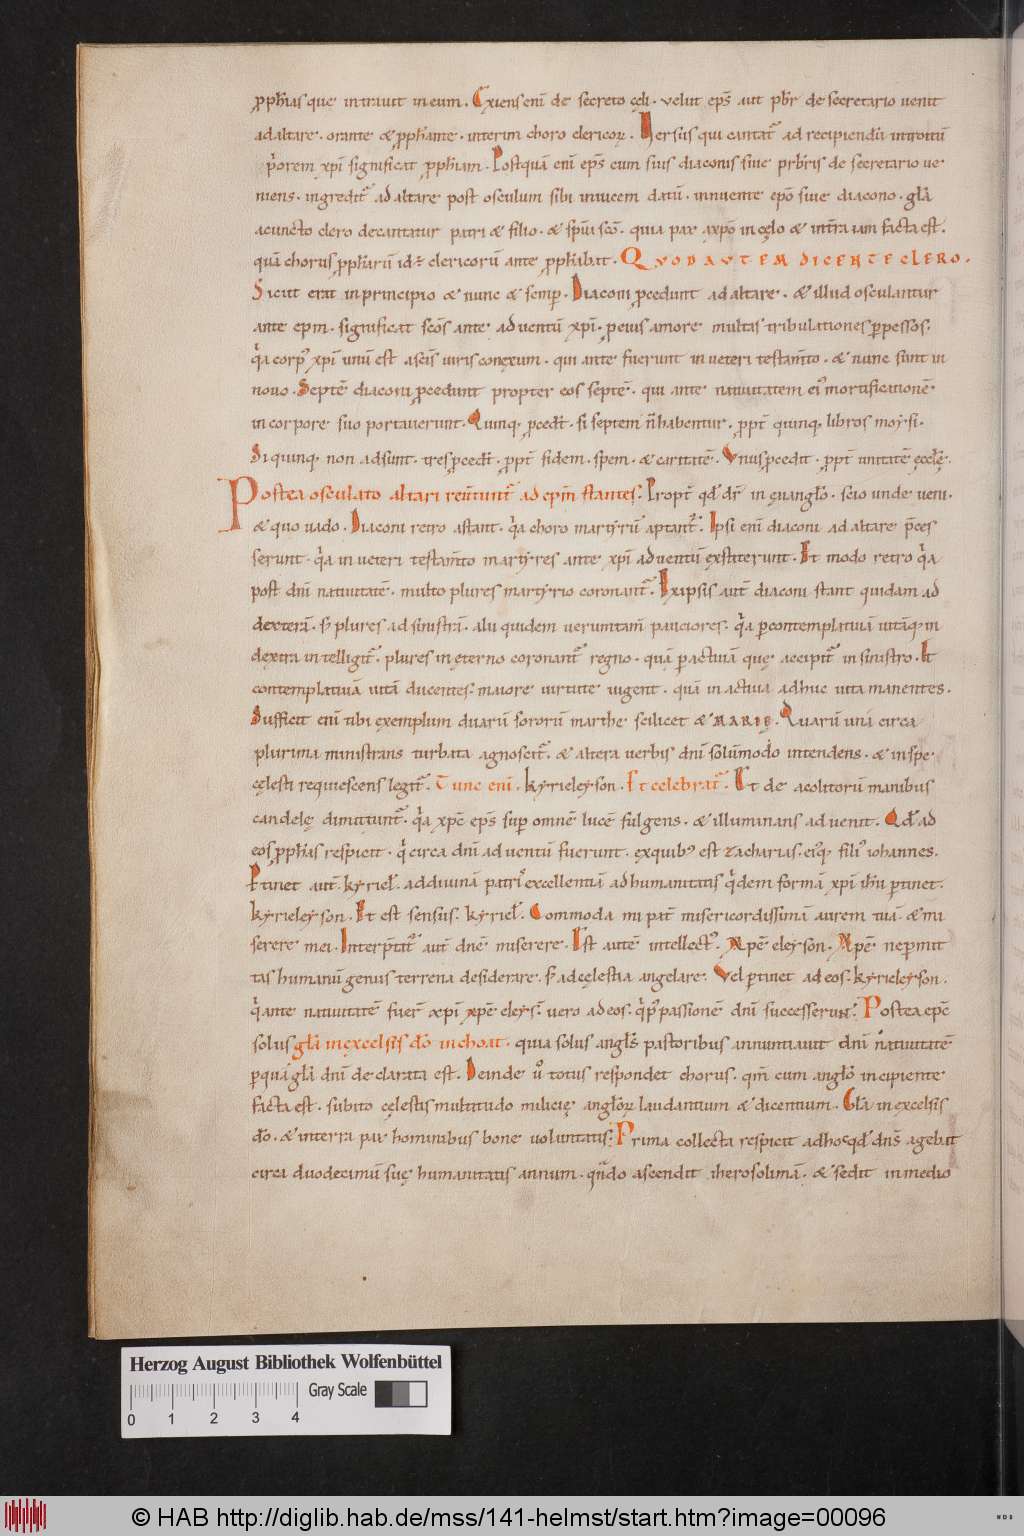 ꝓph&as que intrauit in eum. Exiens enī de secreto cęli. velut ep̄s aut pb̄r de secretario uenit
ad altare. orante & ꝓph&ante. interim choro clericoꝝ. Versus qui cantat᷑ ad recipiendū introitū
p̄orem xp̄i significat ꝓph&iam. Postquā enī ep̄s cum suis diaconis siue prb̄ris de secretario ue
niens. ingredit᷑ ad altare post osculum sibi inuicem datū. innuente ep̄o siue diacono. gl̄a
acuncto clero decantatur patri & filio. & sp̄ui sc̄o. quia pax a xp̄o in cęlo & in t̄ra iam facta est.
quā chorus ꝓph&arū id ē clericorū ante ꝓph&abat. QVOD AVTEM DICENTE CLERO.
Sicut erat in principio & nunc & semp̄. Diaconi ꝓcedunt ad altare. & illud osculantur
ante epm. significat sc̄os ante aduentū xp̄i. ꝓ eius amore multas tribulationes ꝑpessos.
q̄a corpꝰ xp̄i unū est a sc̄is uiris conexum. qui ante fuerunt in ueteri testam̄to. & nunc sunt in
nouo. Septē diaconi ꝓcedunt propter eos septē. qui ante natiuitatem eiꝰ mortificationē
in corpore suo portauerunt. Quinq; ꝓced̄t. si septem n̄ habentur. ꝓpt̄ quinq; libros moysi.
Si quinq; non adsunt. tres ꝓced̄t. ꝓpt̄ fidem. spem. & caritatē. Vnus ꝓcedit. ꝓpt̄ unitatē ęccl̄ę.
Postea osculato altari reūtunt᷑ ad ep̄m stantes. Propt̄ qd̄ dr̄ in ęuanglō. scio unde ueni.
& quo uado. Diaconi retro astant. q̄a choro martyrū aptant᷑. Ipsi enī diaconi ad altare p̄ces
serunt. q̄a in ueteri testam̄to martyres ante xp̄i aduentū exstiterunt. Et modo retro q̄a
post dn̄i natiuitatē. multo plures martyrio coronant᷑. Ex ipsis aut̄ diaconi stant quidam ad
dexterā. s̄ plures ad sinistrā. alii quidem uerumtam̄ pauciores. q̄a ꝑ contemplatiuā uitā q̄ in
dextra intelligit᷑. plures in ęterno coronant᷑ regno. quā ꝑ actiuā quę accipit᷑ in sinistro. Et
contemplatiuā uitā ducentes. maiore uirtute uigent. quā in actiua adhuc uita manentes.
Sufficit enī tibi exemplum duarū sororū marthe scilicet & MARIĘ. Quarū una circa
plurima ministrans turbata agnoscit᷑. & altera uerbis dn̄i solūmodo intendens. & in spe
cęlesti requiescens legit᷑. Tunc enī. kyrieleyson. Et celebrat᷑. Et de acolitorū manibus
candelę dimittunt᷑. q̄a xp̄c ep̄s sup̄ omnē lucē fulgens. & illuminans aduenit. Qd̄ ad
eos ꝓph&as respicit. q̄ circa dn̄i aduentū fuerunt. ex quibꝰ est zacharias. eiꝰq; filiꝰ iohannes.
Ptinet aut̄. kyriel̄. ad diuinā patrī excellentiā ad humanitatis q̄dem formā xp̄i ih̄u ꝑtinet.
kyrieleyson. Et est sensus. kyriel̄. Commoda mi pat̄ misericordissimā aurem tuā. & mi
serere mei. Interp̄tat᷑ aut̄ dn̄ē miserere. Est autē intellectꝰ. Xp̄ē eleyson. Xp̄ē ne ꝑmit
tas humanū genus terrena desiderare. s̄ ad cęlestia angelare. Vel ꝑtinet ad eos. kyrieleyson.
q̄ ante natiuitatē fuer̄ xp̄i xp̄ē eleys̄. vero ad eos. q̄ pꝰ passionē dn̄i successerunt. Postea ep̄c
solus gl̄a in excelsis dō inchoat. quia solus angls̄ pastoribus annuntiauit dn̄i natiuitatē
ꝑ quā gl̄a dn̄i declarata est. Deinde ů totus respondet chorus. qm̄ cum anglō incipiente
facta est. subito cęlestis multitudo milicię angloꝝ laudantium & dicentium. Gl̄a in excelsis
dō. & in terra pax hominibus bone uoluntatis. Prima collecta respicit ad hoc qd̄ dn̄s agebat
circa duodecimū suę humanitatis annum. qn̄do ascendit iherosolimā. & sedit in medio
Herzog August Bibliothek Wolfenbüttel
Gray Scale
0 1 2 3 4
© HAB http://diglib.hab.de/mss/141-helmst/start.htm?image=00096